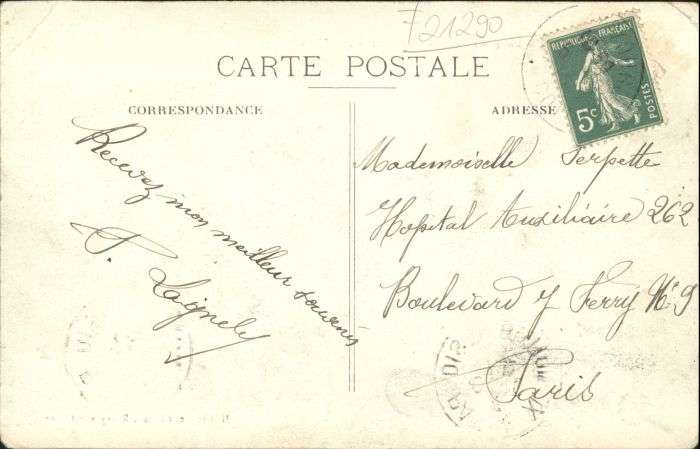 F 21290
CARTE POSTALE
CORRESPONDANCE
ADRESSE
REPUBLIQUE FRANÇAISE
5c
POSTES
Recevez mon meilleur souvenir
Mademoiselle Serpette
Hopital Auxiliaire 262
Boulevard J Ferry N° 9
Paris